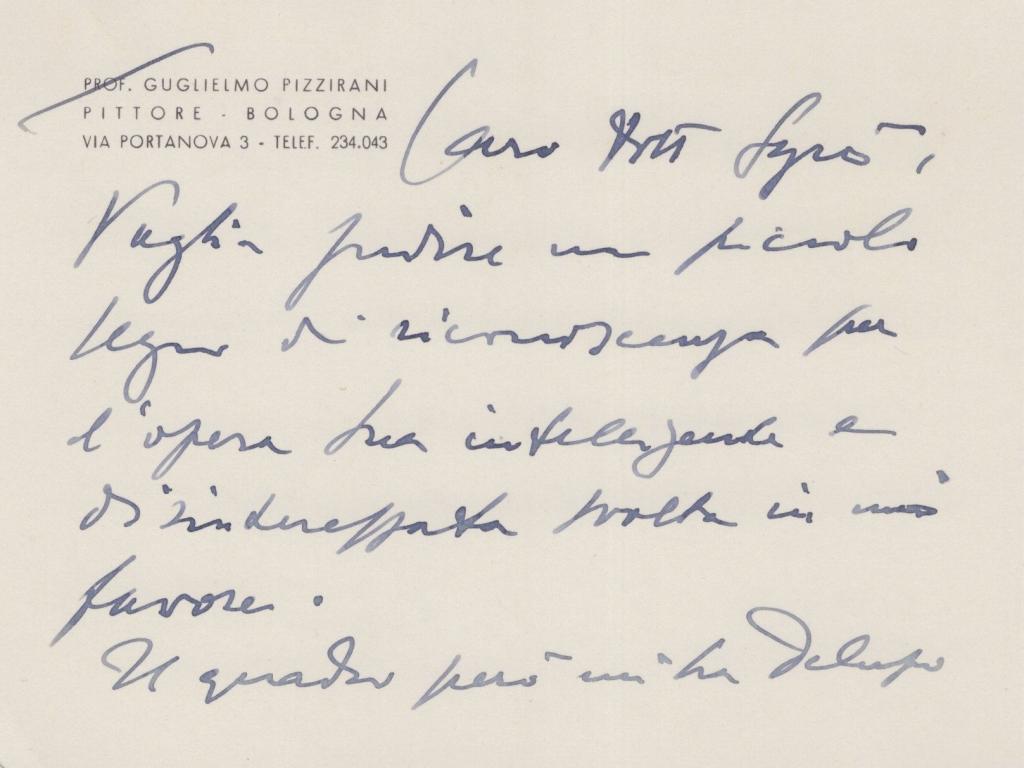 PROF. GUGLIELMO PIZZIRANI
PITTORE - BOLOGNA
VIA PORTANOVA 3 - TELEF. 234.043
Caro Dott
Voglia gradire un piccolo
segno di riconoscenza per
l'opera Sua intelligente e
disinteressata svolta in mio
favore.
Il quadro però mi ha deluso